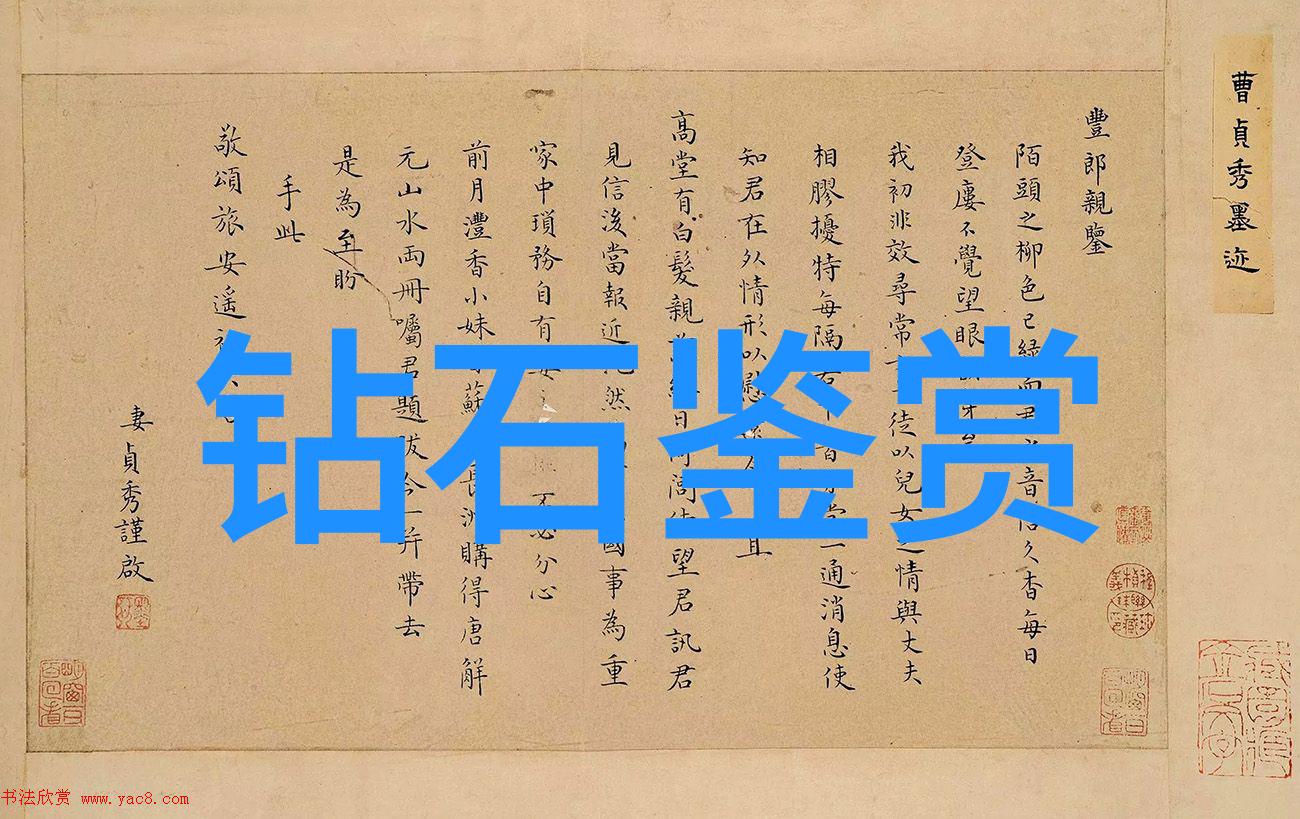 曹貞秀墨迹
豐郎親鑒
陌頭之柳色已綠而君之音信久杳每日
登樓不覺望眼
我初非效尋常 徒以兒女之情與丈夫
相膠擾特每隔 一通消息使
知君在外情形以慰 且
高堂有白髮親 日 望君訊君
見信後當報近 然 國事為重
家中瑣務自有 不必分心
前月灃香小妹 蘇 長洲購得唐解
元山水兩冊囑君題跋今一并帶去
是為至盼
手此
敬頌旅安遙
妻貞秀謹啟
钻石鉴赏
书法欣赏 www.yac8.com